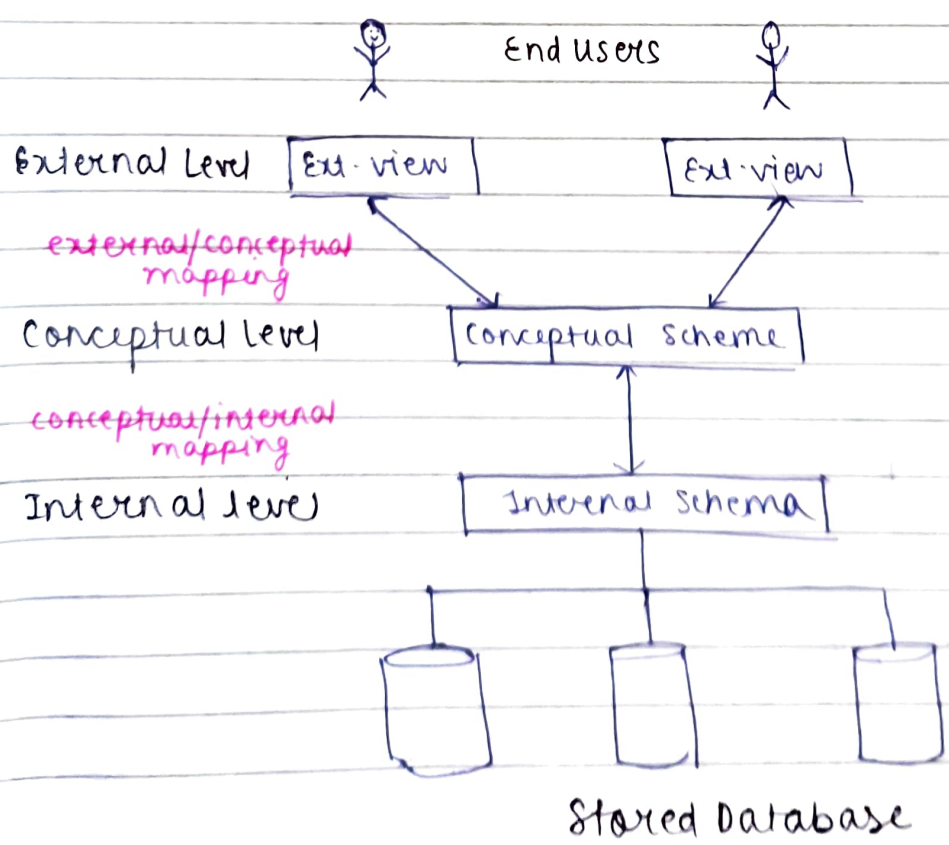 End Users
External Level
Ext. view
Ext. view
external/conceptual
mapping
Conceptual Level
Conceptual Scheme
conceptual/internal
mapping
Internal level
Internal Schema
Stored Database